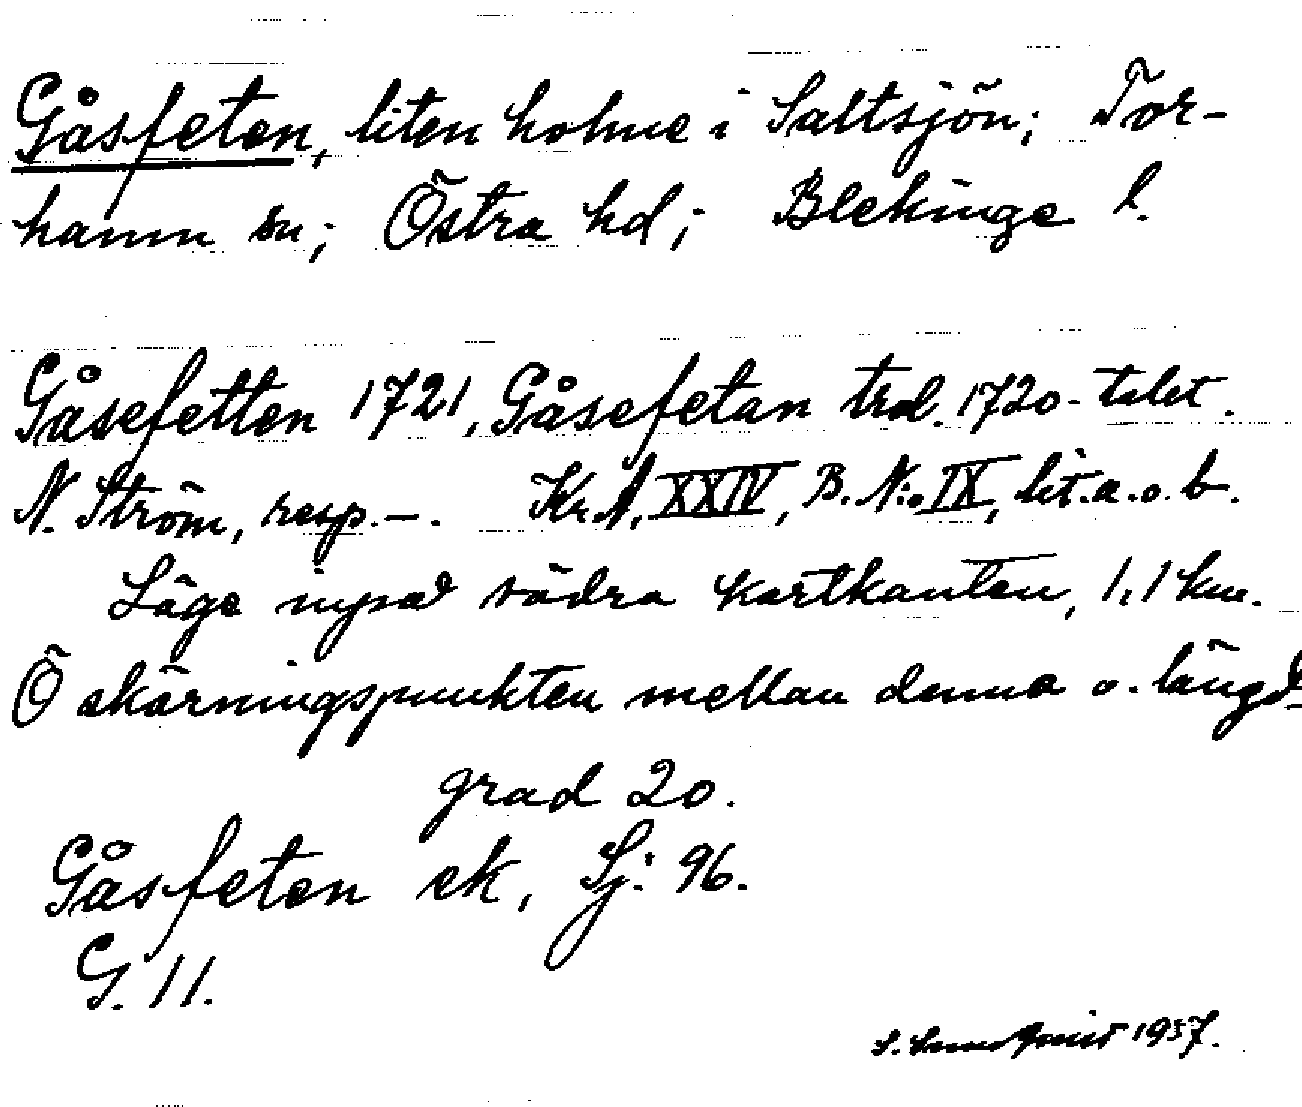 Gåsfeten, liten holme i Saltsjön; Tor-
hamn sn; Östra hd; Blekinge l.
Gåsefetten 1721, Gåsefetan trol. 1720-talet.
N. Ström, resp. –. Kr. A, XXIV, B. N:o IX, lit. a. o. b.
Läge inpå södra kartkanten, 1,1 km.
Ö skärningspunkten mellan denna o. längd-
grad 20.
Gåsfeten ek, Sj: 96.
G. 11.
S. Sundqvist 1957.